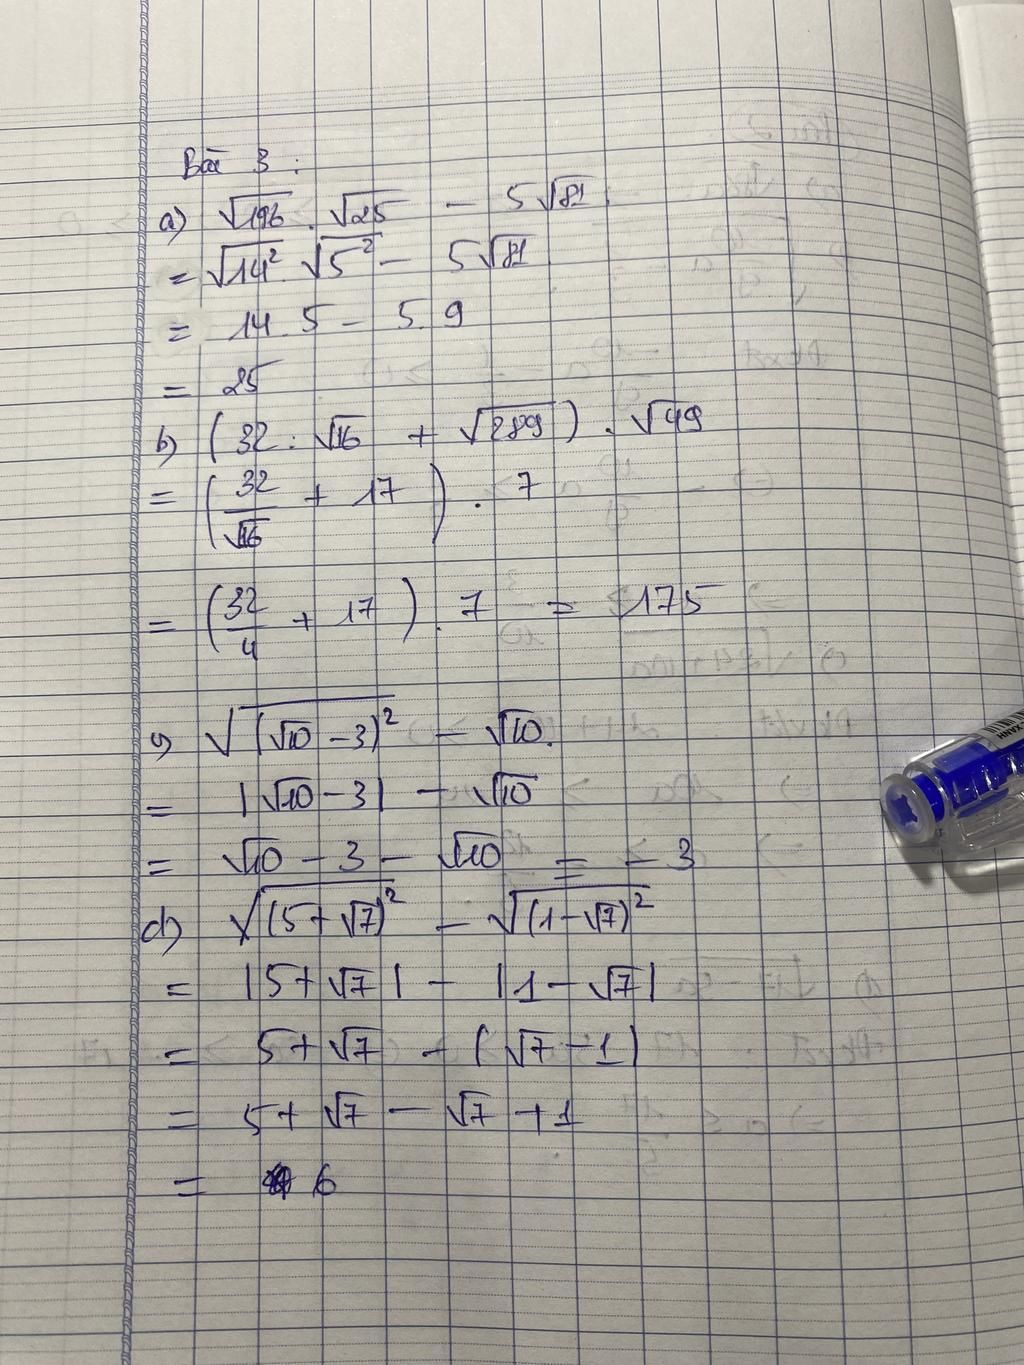 Bài 3 :
a) √196 . √25 - 5√81
= √14² . √5² - 5√81
= 14 . 5 - 5 . 9
= 25
b) (32 : √16 + √289) . √49
= (32/√16 + 17) . 7
= (32/4 + 17) . 7 = 175
c) √(√10 - 3)² - √10.
= |√10 - 3| - √10
= √10 - 3 - √10 = -3
d) √(5 + √7)² - √(1 - √7)²
= |5 + √7| - |1 - √7|
= 5 + √7 + (√7 - 1)
= 5 + √7 - √7 + 1
= 6